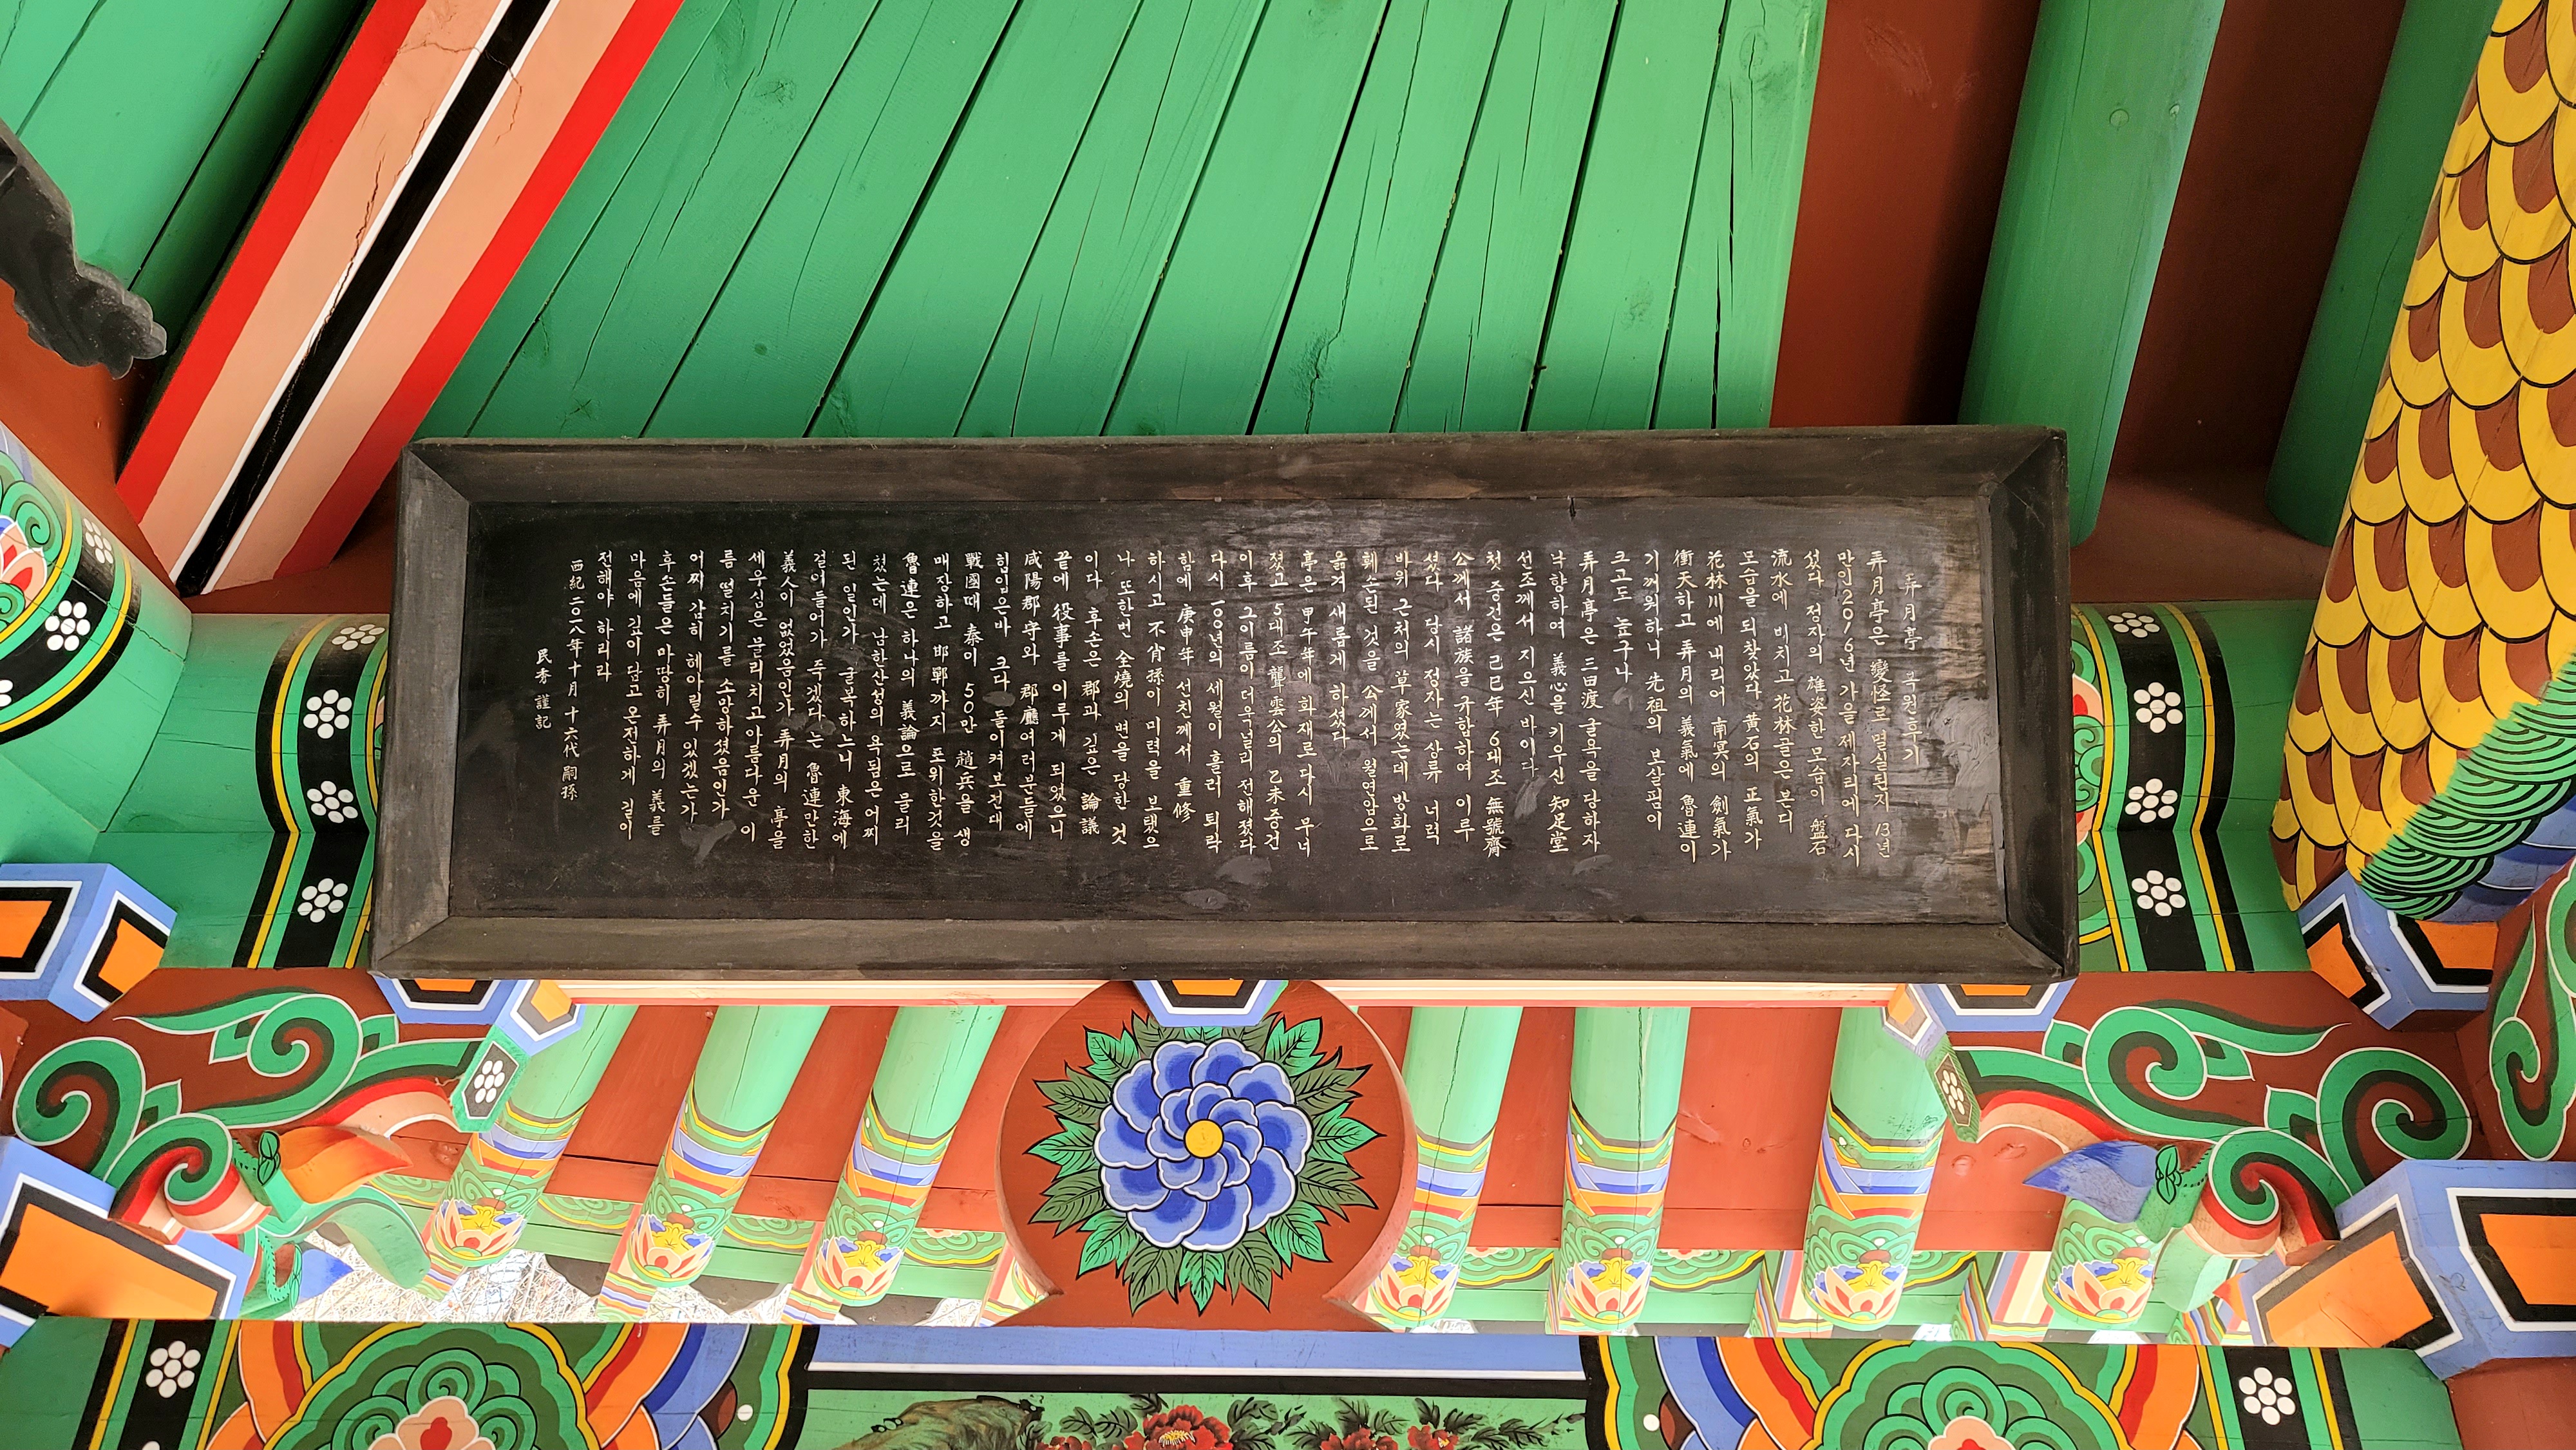 弄月亭 복원후기
弄月亭은 變怪로 멸실된지 13년
만인 2016년 가을 제자리에 다시
섰다 정자의 雄姿한 모습이 盤石
流水에 비치고 花林골은 본디
모습을 되찾았다 黃石의 正氣가
花林川에 내리어 南冥의 劍氣가
衝天하고 弄月의 義氣에 魯連이
기꺼워하니 先祖의 보살핌이
크고도 높구나
弄月亭은 三田渡 굴욕을 당하자
낙향하여 義心을 키우신 知足堂
선조께서 지으신 바이다
첫 중건은 己巳年 6대조 無號齋
公께서 諸族을 규합하여 이루
셨다 당시 정자는 상류 너럭
바위 근처의 草家였는데 방화로
훼손된 것을 公께서 월연암으로
옮겨 새롭게 하셨다
亭은 甲午年에 화재로 다시 무너
졌고 5대조 聾雲公의 乙未중건
이후 그이름이 더욱널리 전해졌다
다시 一00년의 세월이 흘러 퇴락
함에 庚申年 선친께서 重修
하시고 不肖孫이 미력을 보탰으
나 또한번 全燒의 변을 당한 것
이다 후손은 郡과 깊은 論議
끝에 役事를 이루게 되었으니
咸陽郡守와 郡廳여러분들에
힘입은바 크다 돌이켜보건대
戰國때 秦이 50만 趙兵을 생
매장하고 邯鄲까지 포위한것을
魯連은 하나의 義論으로 물리
쳤는데 남한산성의 욕됨은 어찌
된 일인가 굴복하느니 東海에
걸어들어가 죽겠다는 魯連만한
義人이 없었음인가 弄月의 亭을
세우심은 물리치고아름다운 이
름 떨치기를 소망하셨음인가
어찌 감히 헤아릴수 있겠는가
후손들은 마땅히 弄月의 義를
마음에 깊이 담고 온전하게 길이
전해야 하리라
西紀 二0一八年 十月 十六代 嗣孫
民秀 謹記